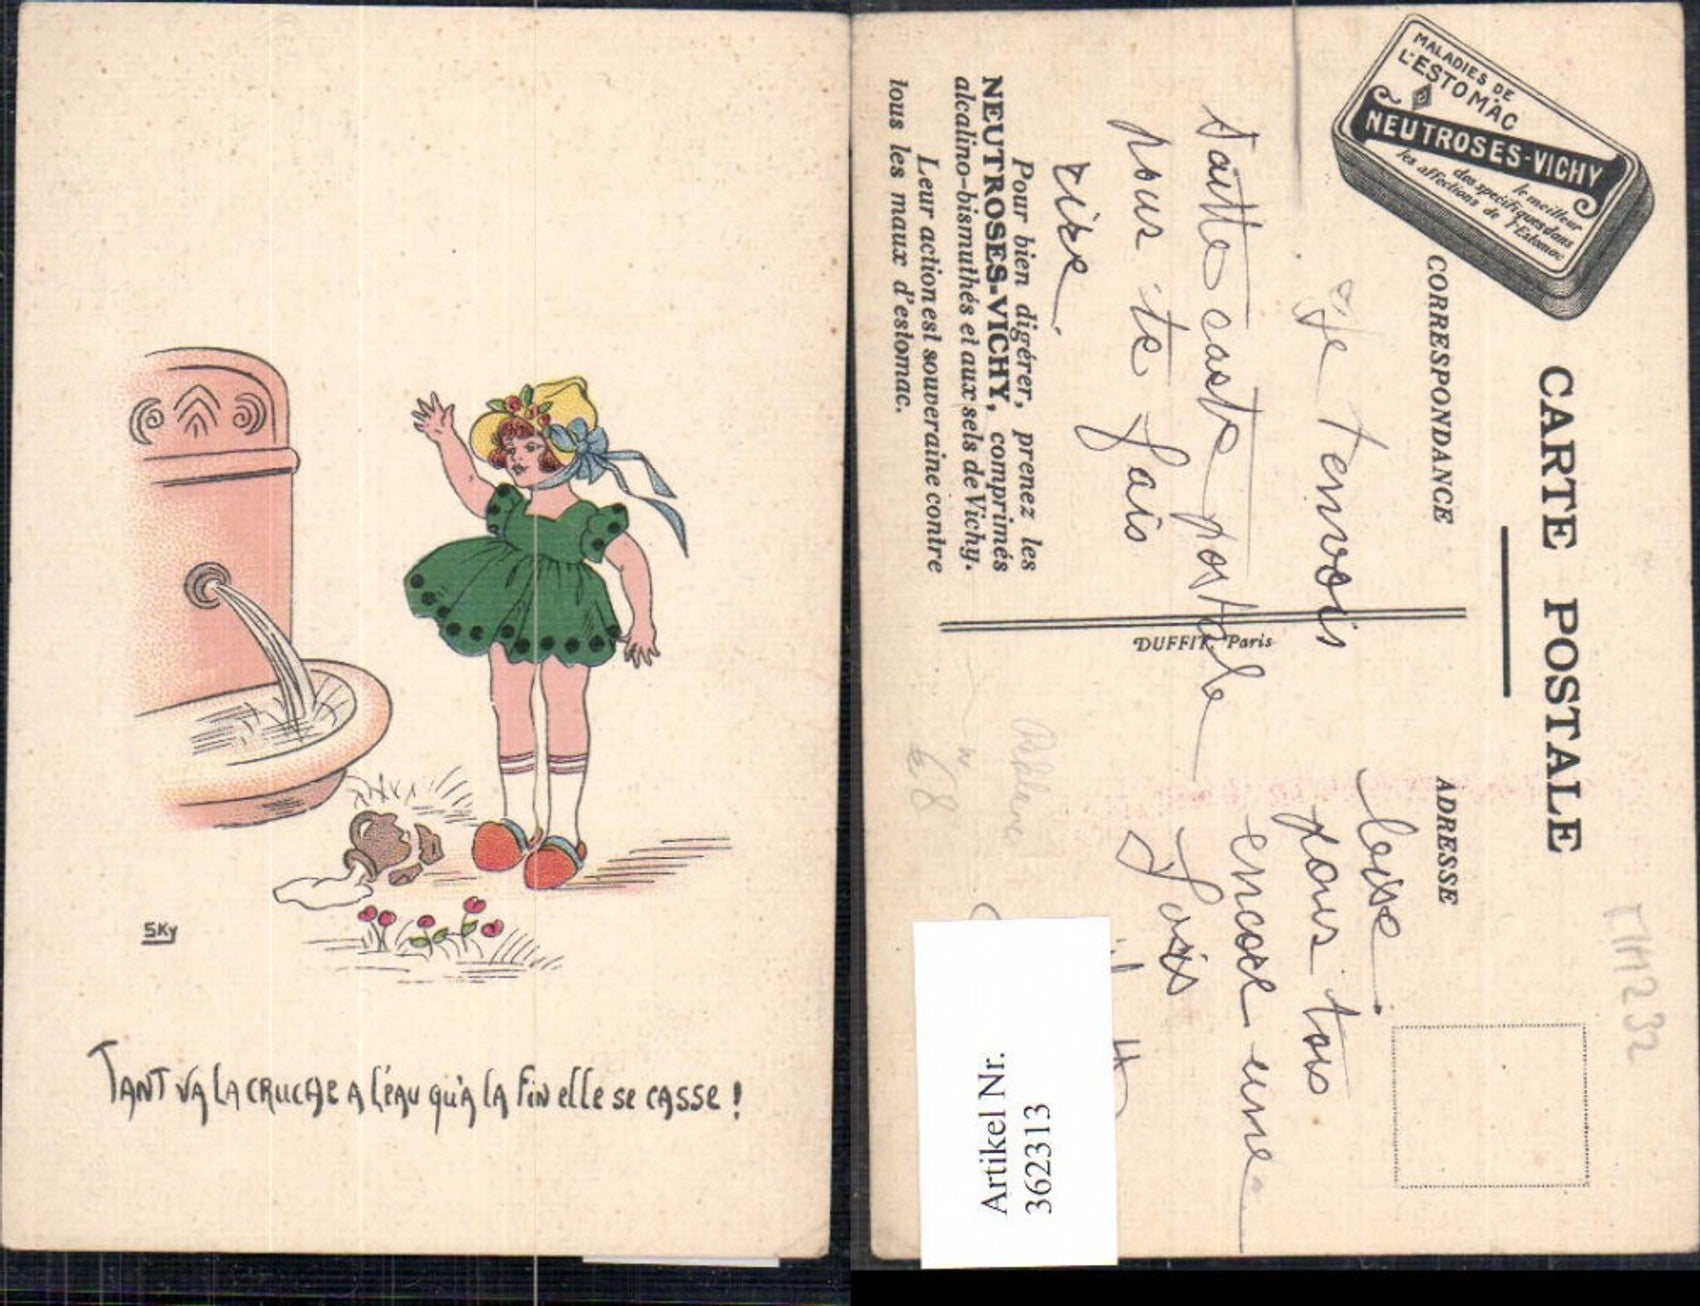 SKy
TANT VA LA CRUCHE A L'EAU QU'A LA FIN ELLE SE CASSE !
MALADIES DE
L'ESTOMAC
NEUTROSES-VICHY
le meilleur
des spécifiques dans
les affections de l'Estomac
CARTE POSTALE
CORRESPONDANCE
Je tenvois
sette carte postale
pour te fais
rire
Pour bien digérer, prenez les
NEUTROSES-VICHY, comprimés
alcalino-bismuthés et aux sels de Vichy.
Leur action est souveraine contre
tous les maux d'estomac.
DUFFIT, Paris
ADRESSE
pour tois
encore une
fois
68
Artikel Nr.
362313